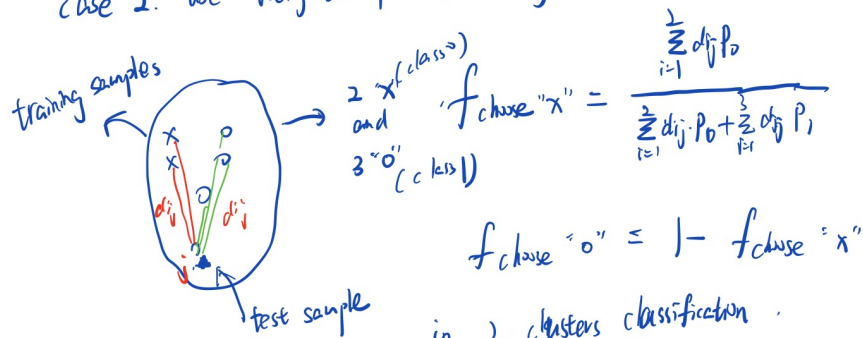 training samples
x o
x o
o
dij dij
j
test sample
2 x (class 0)
and
3 "o"
(class 1)
f choose "x" = \frac{\sum_{i=1}^{2} dij P_0}{\sum_{i=1}^{2} dij \cdot P_0 + \sum_{i=1}^{3} dij P_1}
f choose "o" = 1 - f choose "x"
in 2 clusters classification.